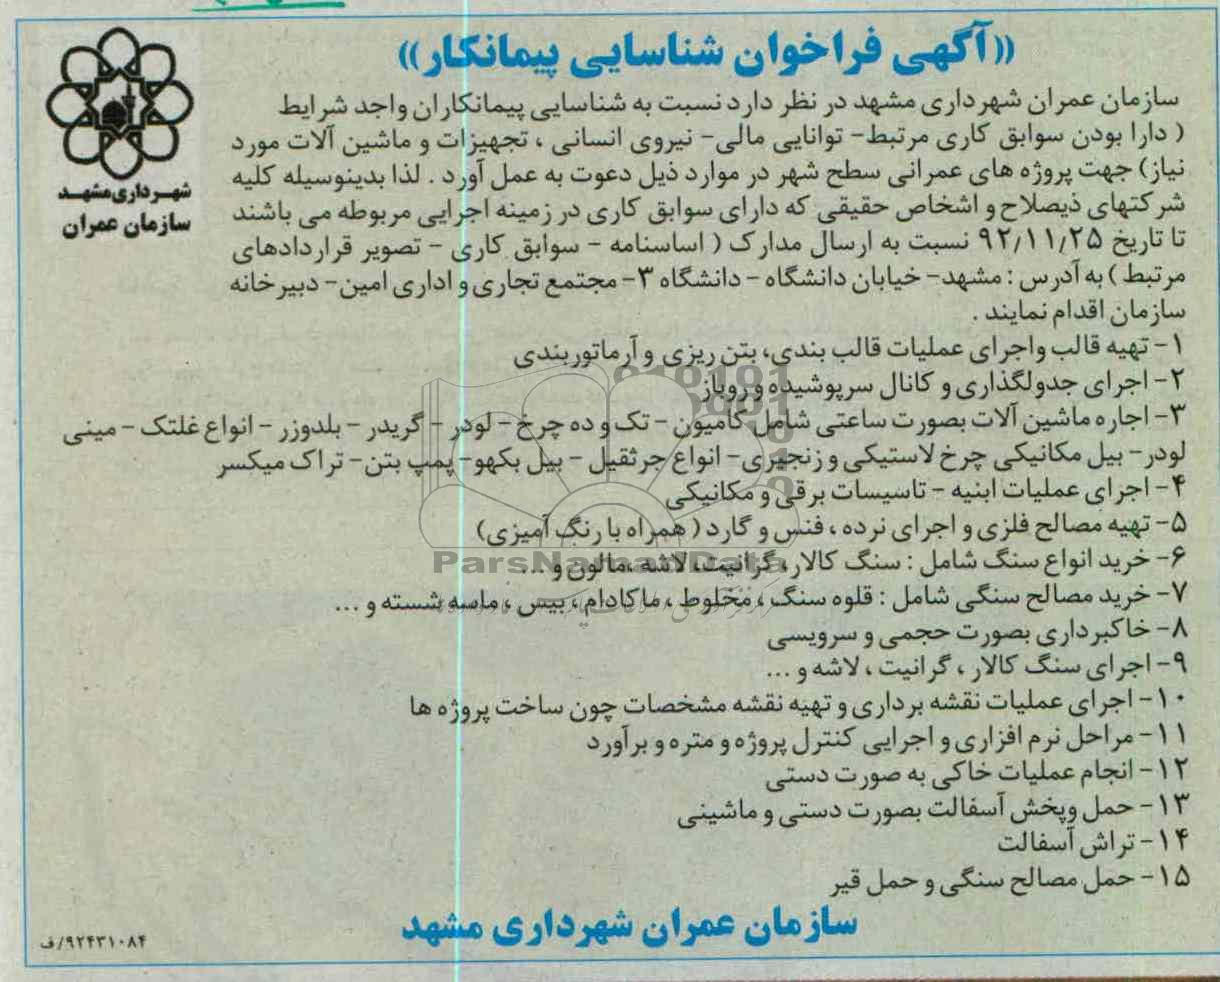 ((آگهی فراخوان شناسایی پیمانکار))
شهرداری مشهد
سازمان عمران
سازمان عمران شهرداری مشهد در نظر دارد نسبت به شناسایی پیمانکاران واجد شرایط
( دارا بودن سوابق کاری مرتبط- توانایی مالی- نیروی انسانی ، تجهیزات و ماشین آلات مورد
نیاز) جهت پروژه های عمرانی سطح شهر در موارد ذیل دعوت به عمل آورد . لذا بدینوسیله کلیه
شرکتهای ذیصلاح و اشخاص حقیقی که دارای سوابق کاری در زمینه اجرایی مربوطه می باشند
تا تاریخ ۹۲/۱۱/۲۵ نسبت به ارسال مدارک ( اساسنامه - سوابق کاری - تصویر قراردادهای
مرتبط ) به آدرس : مشهد- خیابان دانشگاه - دانشگاه ۳- مجتمع تجاری و اداری امین- دبیرخانه
سازمان اقدام نمایند .
۱- تهیه قالب واجرای عملیات قالب بندی، بتن ریزی و آرماتوربندی
۲- اجرای جدولگذاری و کانال سرپوشیده و روباز
۳- اجاره ماشین آلات بصورت ساعتی شامل کامیون - تک و ده چرخ - لودر - گریدر - بلدوزر - انواع غلتک - مینی
لودر- بیل مکانیکی چرخ لاستیکی و زنجیری- انواع جرثقیل - بیل بکهو- پمپ بتن- تراک میکسر
۴- اجرای عملیات ابنیه - تاسیسات برقی و مکانیکی
۵- تهیه مصالح فلزی و اجرای نرده ، فنس و گارد ( همراه با رنگ آمیزی)
۶- خرید انواع سنگ شامل : سنگ کالار، گرانیت، لاشه ،مالون و ...
ParsNamadData
۷- خرید مصالح سنگی شامل : قلوه سنگ ، مخلوط ، ماکادام ، بیس ، ماسه شسته و ...
۸- خاکبرداری بصورت حجمی و سرویسی
۹- اجرای سنگ کالار ، گرانیت ، لاشه و ...
۱۰- اجرای عملیات نقشه برداری و تهیه نقشه مشخصات چون ساخت پروژه ها
۱۱- مراحل نرم افزاری و اجرایی کنترل پروژه و متره و برآورد
۱۲- انجام عملیات خاکی به صورت دستی
۱۳- حمل وپخش آسفالت بصورت دستی و ماشینی
۱۴- تراش آسفالت
۱۵- حمل مصالح سنگی و حمل قیر
سازمان عمران شهرداری مشهد
۹۲۴۳۱۰۸۴/ف